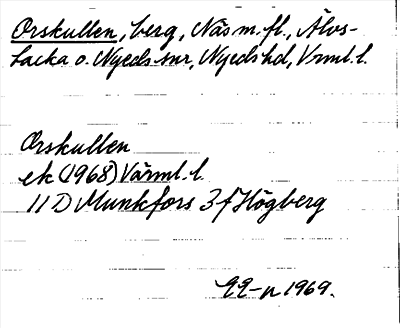 Orskullen, berg, Näs m.fl., Älvs-
backa o. Nyeds snr, Nyeds hd, Vrml. l.
Orskullen
ek (1968) Värml. l.
11 D Munkfors 3 f Högberg
1969.